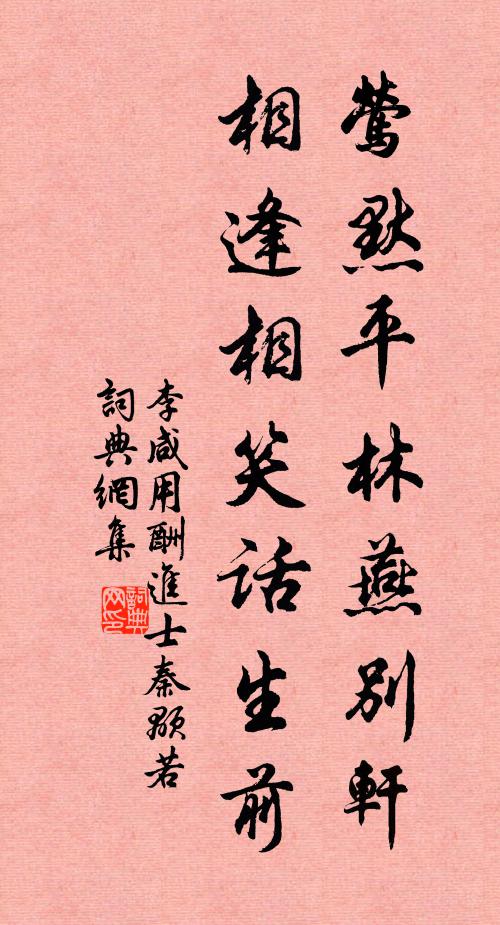 鶯默平林燕別軒
相逢相笑話生前
李咸用酬進士秦顒若
詞典網集
詞典网印